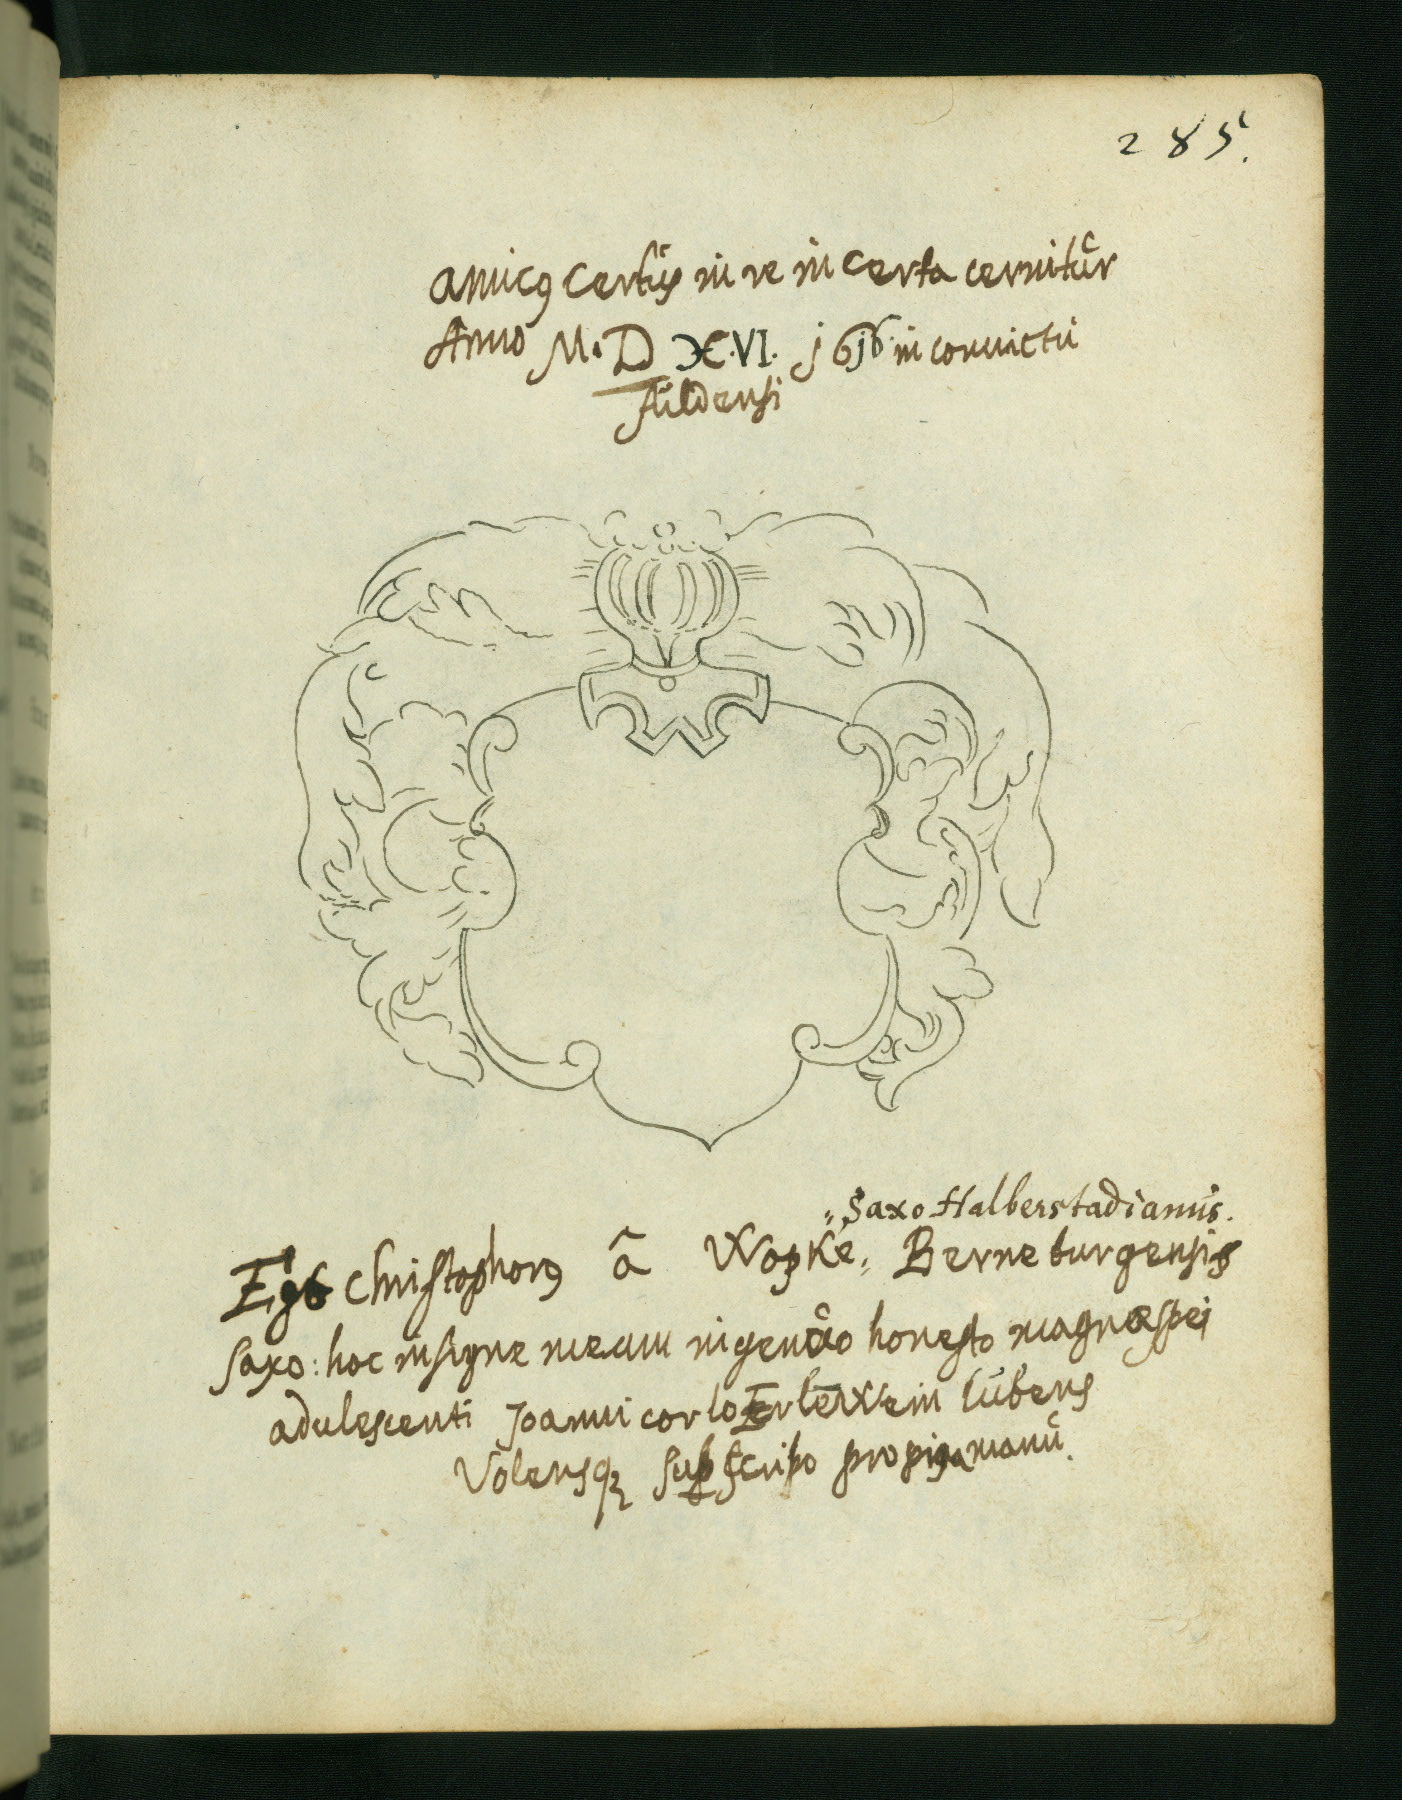 285.
amicꝯ certus in re incerta cernitur
Anno M.D XC.VI. j6j6 in convictu
fuldensi
„Saxo Halberstadianus.
Ego christophorꝯ â Wopke„ Berneburgensis
saxo: hoc insigne meum ingenuo honesto magnæ spei
adulescenti Joanni carlo Erlerwein lubens
Volensqꝫ subscribo propia manu.